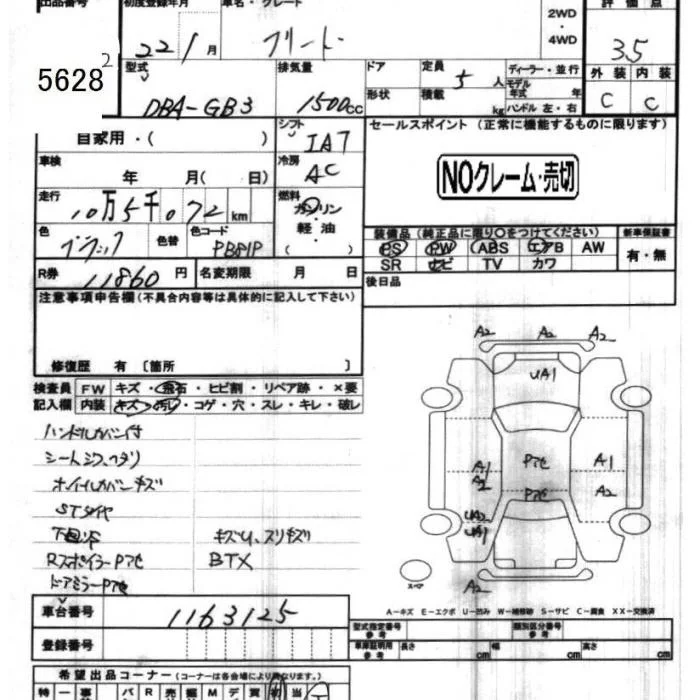 出品番号
初度登録年月
車名・グレード
評価点
5628
22 1 月
フリード
2WD
・
4WD
3.5
型式
排気量
ドア
定員
5 人
ディーラー・並行
モデル
年式 年
外装 内装
DBA-GB3
1500cc
形状
積載
kg
ハンドル 左・右
C C
自家用・( )
シフト
IAT
セールスポイント (正常に機能するものに限ります)
車検
年 月( 日)
冷房
AC
NOクレーム・売切
走行
10万5千072 km
燃料
ガソリン
・
軽油
( )
色
ブラック
色替
色コード
PB81P
装備品 (純正品に限り○をつけてください)
新車保証書
PS PW ABS エアB AW
有・無
SR ナビ TV カワ
R券
11860 円
名変期限 月 日
後日品
注意事項申告欄(不具合内容等は具体的に記入して下さい)
修復歴 有 〔箇所 〕
検査員
記入欄
FW キズ・飛石・ヒビ割・リペア跡・×要
内装 キズ・汚レ・コゲ・穴・スレ・キレ・破レ
ハンドルカバー付
シートシワ、ヘタリ
ホイルカバーキズ
STタイヤ
キズU、スリキズ
Rスポイラー Pアセ
BTX
ドアミラー Pアセ
A2 A2 A2
UA1
A1 Pアセ A1
A2 Pアセ A2
UA2
UA1
スペア
A2
A－キズ E－エクボ U－凹み W－補修跡 S－サビ C－腐食 XX－交換済
車台番号
1163125
登録番号
型式指定番号
参考
類別区分番号
参考
車庫証明
参考
長さ cm
幅 cm
高さ cm
希望出品コーナー (コーナーは各会場により異なります。)